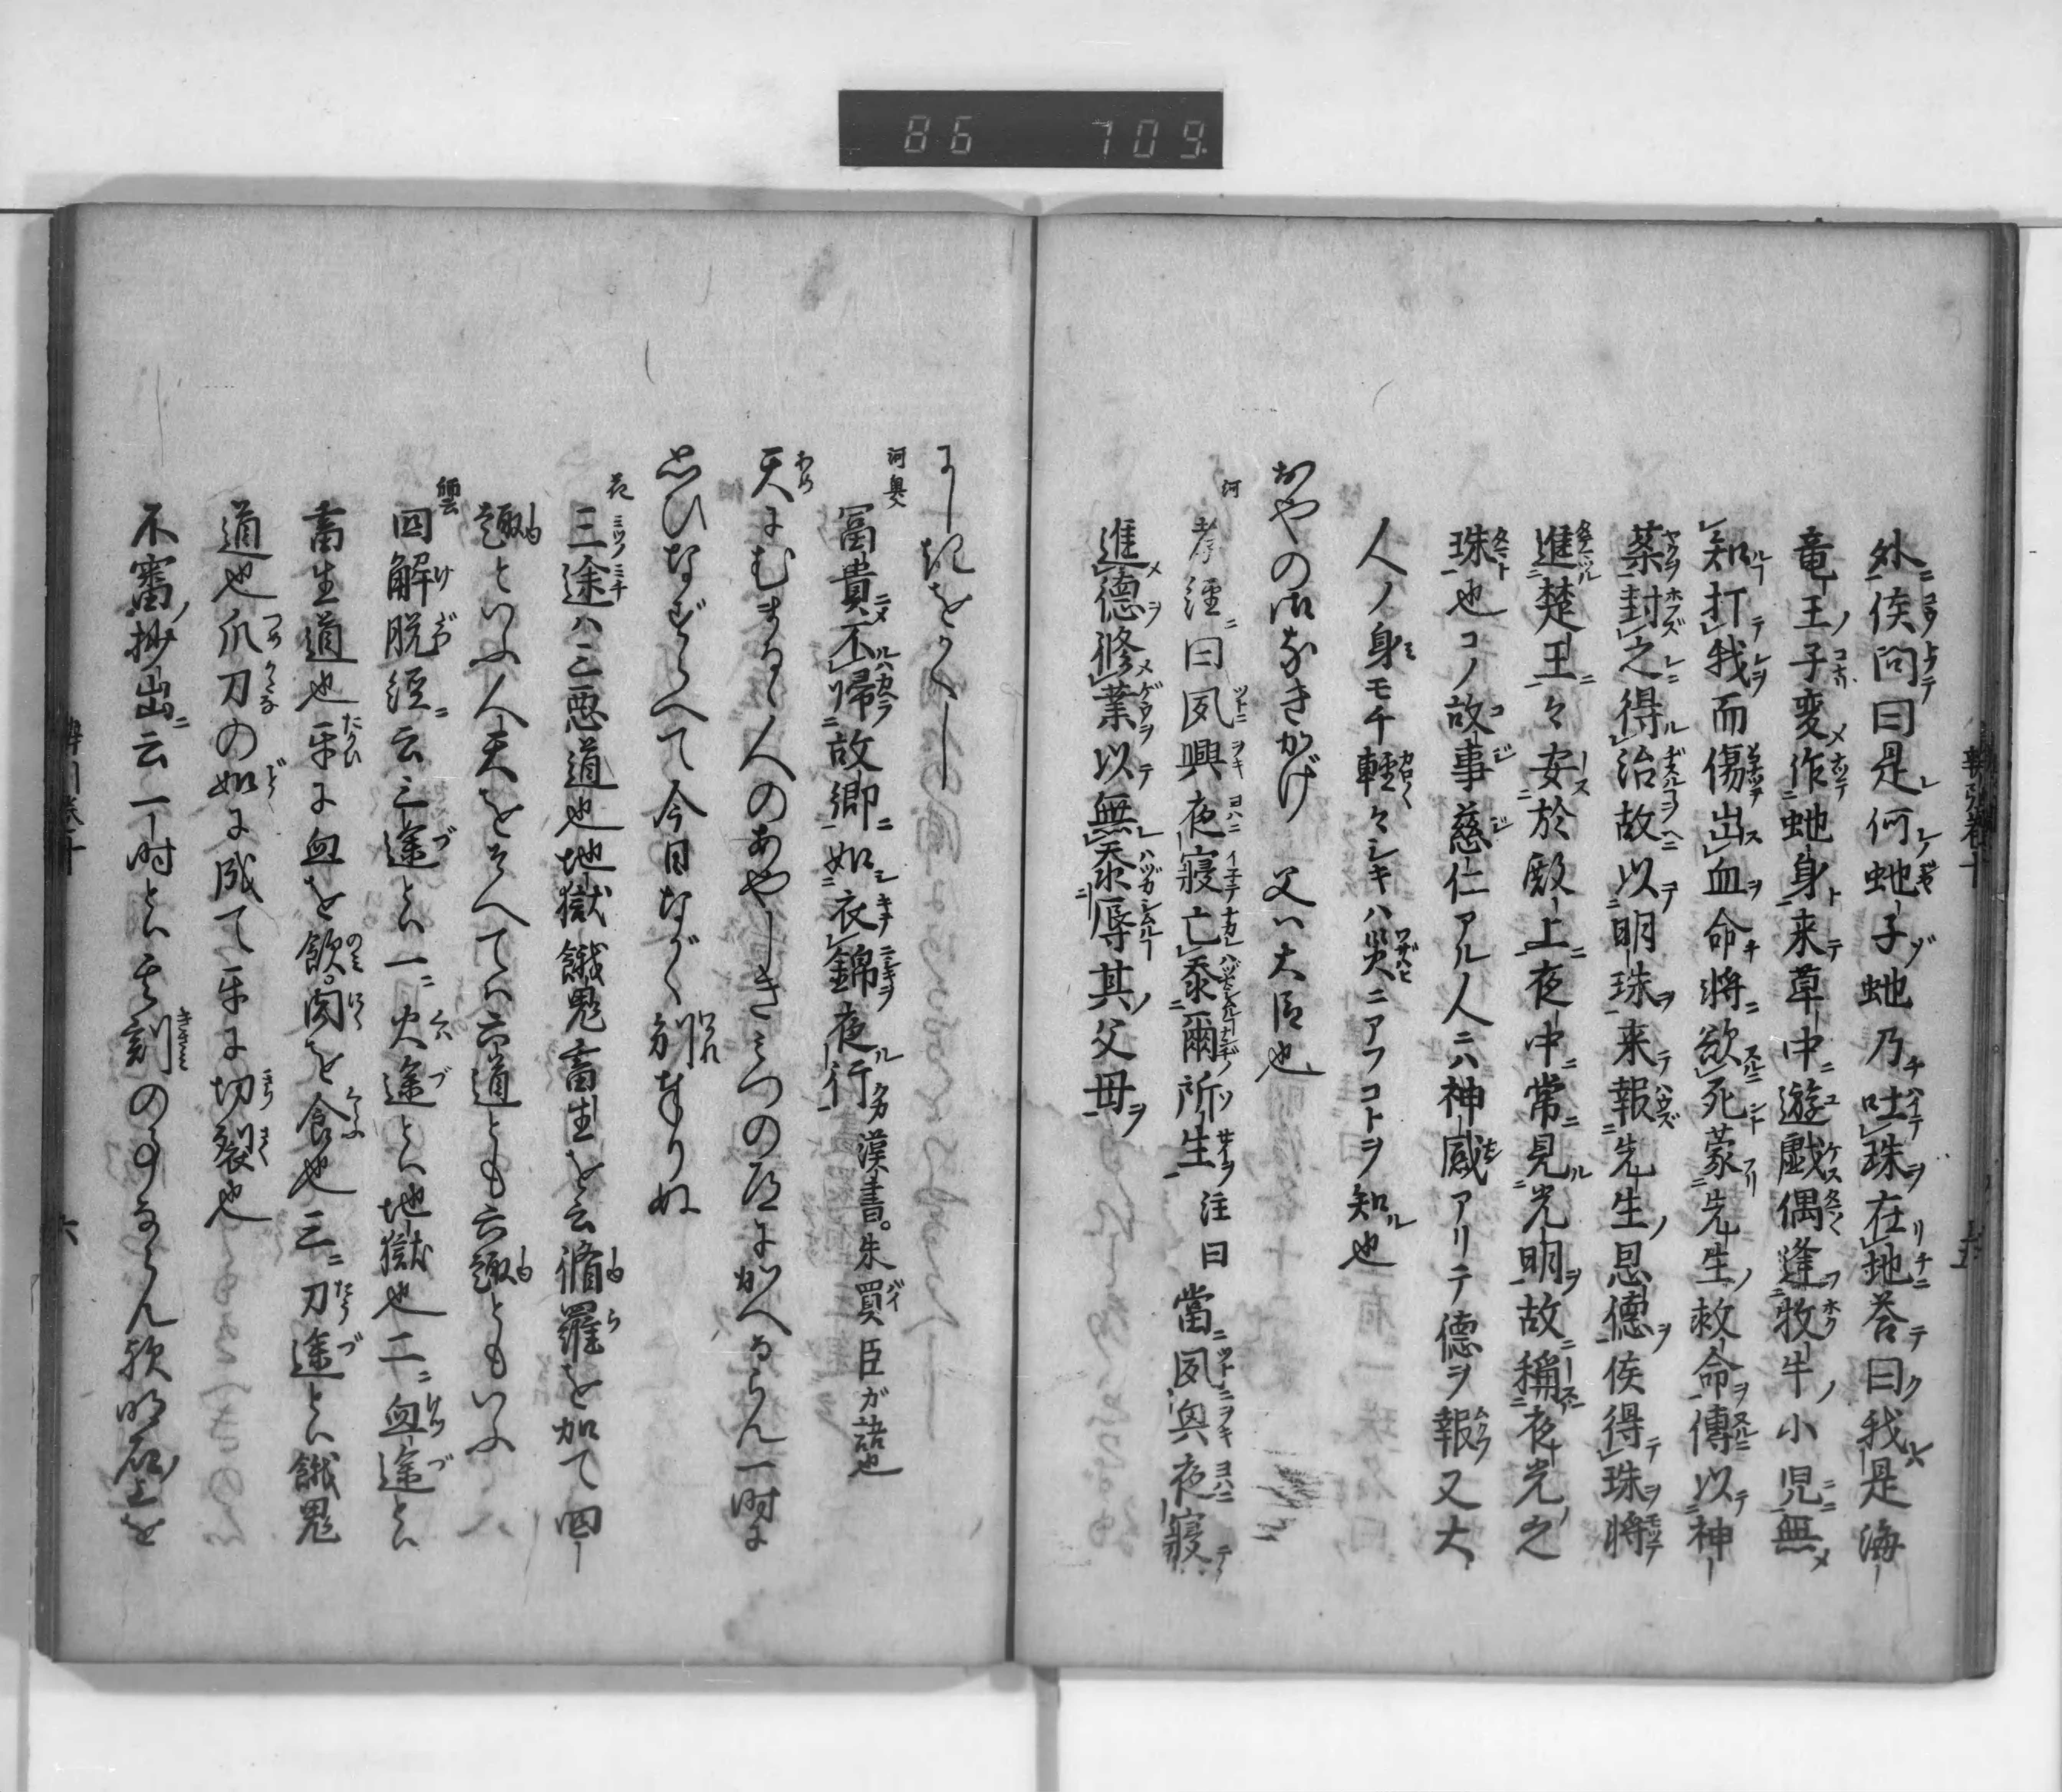 86 709
外侯問曰是何虵子虵乃吐珠在地荅曰我是海
竜王子変作虵身来草中遊戯偶逢牧牛小児無
知打我而傷出血命将欲死蒙先生救命傳以神
薬封之得治故以明珠来報先生恩徳侯得珠将
進楚王々安於殿上夜中常見光明故稱夜光之
珠也コノ故事慈仁アル人ニハ神感アリテ徳ヲ報又大
人ノ身モチ輕々シキハ災ニアフコトヲ知ル也
おやの御なきかげ 父ハ大臣也
河 孝經曰夙興夜寢亡忝爾所生 注曰 當夙興夜寢
進徳修業以無忝辱其父母
にしきをくらし
河奥 冨貴不帰故郷如衣錦夜行 漢書。朱買臣が語也
天にむまるゝ人のあやしきみつの道にかへるらん一時に
思ひなずらへて今日ながく別奉りぬ
花 三途ハ三悪道也地獄餓鬼畜生を云脩羅を加て四
趣といふ人天をそへてハ六道とも六趣ともいふ
細云 四解脱經云三途とハ一火途とハ地獄也二血途とハ
畜生道也牙に血を飲。肉を食也三刀途とハ餓鬼
道也爪刀の如に成て牙に切裂也
不審抄出云一時とハ其刻の事ならん歟明石上を
六